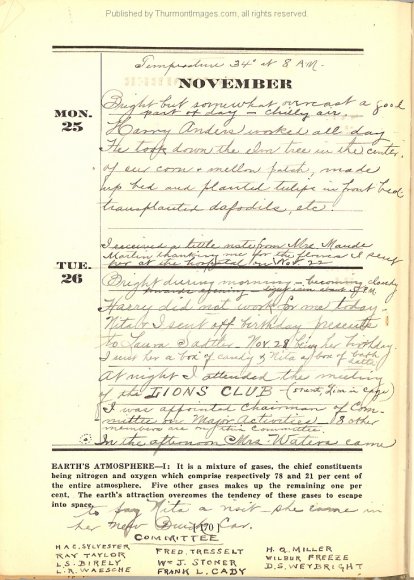 Published by ThurmontImages.com, all rights reserved.
Temperature 34° at 8 A.M.
NOVEMBER
Bright but somewhat overcast a good
part of day – chilly air.
MON.
25
Harry Anders worked all day
He took down the tree in the center
of our corn & mellon patch, made
up bed and planted tulips in front bed
transplanted dafodils, etc.
I received a little note from Mrs. Maude
Martin thanking me for the flowers I sent
her at the hospital on Nov. 22
TUE.
26
Bright during morning – becoming cloudy
Harry did not work for me today.
Nita & I sent off birthday presents
to Laura Sadtler – Nov. 28 being her birthday.
I sent her a box of candy & Nita a box of bath
At night I attended the meeting
of the LIONS CLUB –
I was appointed Chairman of Com-
mittee on Major Activities. 13 other
members are on this Committee.
In the afternoon Mrs. Waters came
EARTH'S ATMOSPHERE—I: It is a mixture of gases, the chief constituents
being nitrogen and oxygen which comprise respectively 78 and 21 per cent of
the entire atmosphere. Five other gases makes up the remaining one per
cent. The earth's attraction overcomes the tendency of these gases to escape
into space.
to pay Nita a visit she came in
her New Buick Car.
[170]
COMMITTEE
H.A.C. SYLVESTER FRED. TRESSELT H. Q. MILLER
RAY TAYLOR WM J. STONER WILBUR FREEZE
L.S. BIRELY FRANK L. CADY D.S. WEYBRIGHT
L.R. WAESCHE